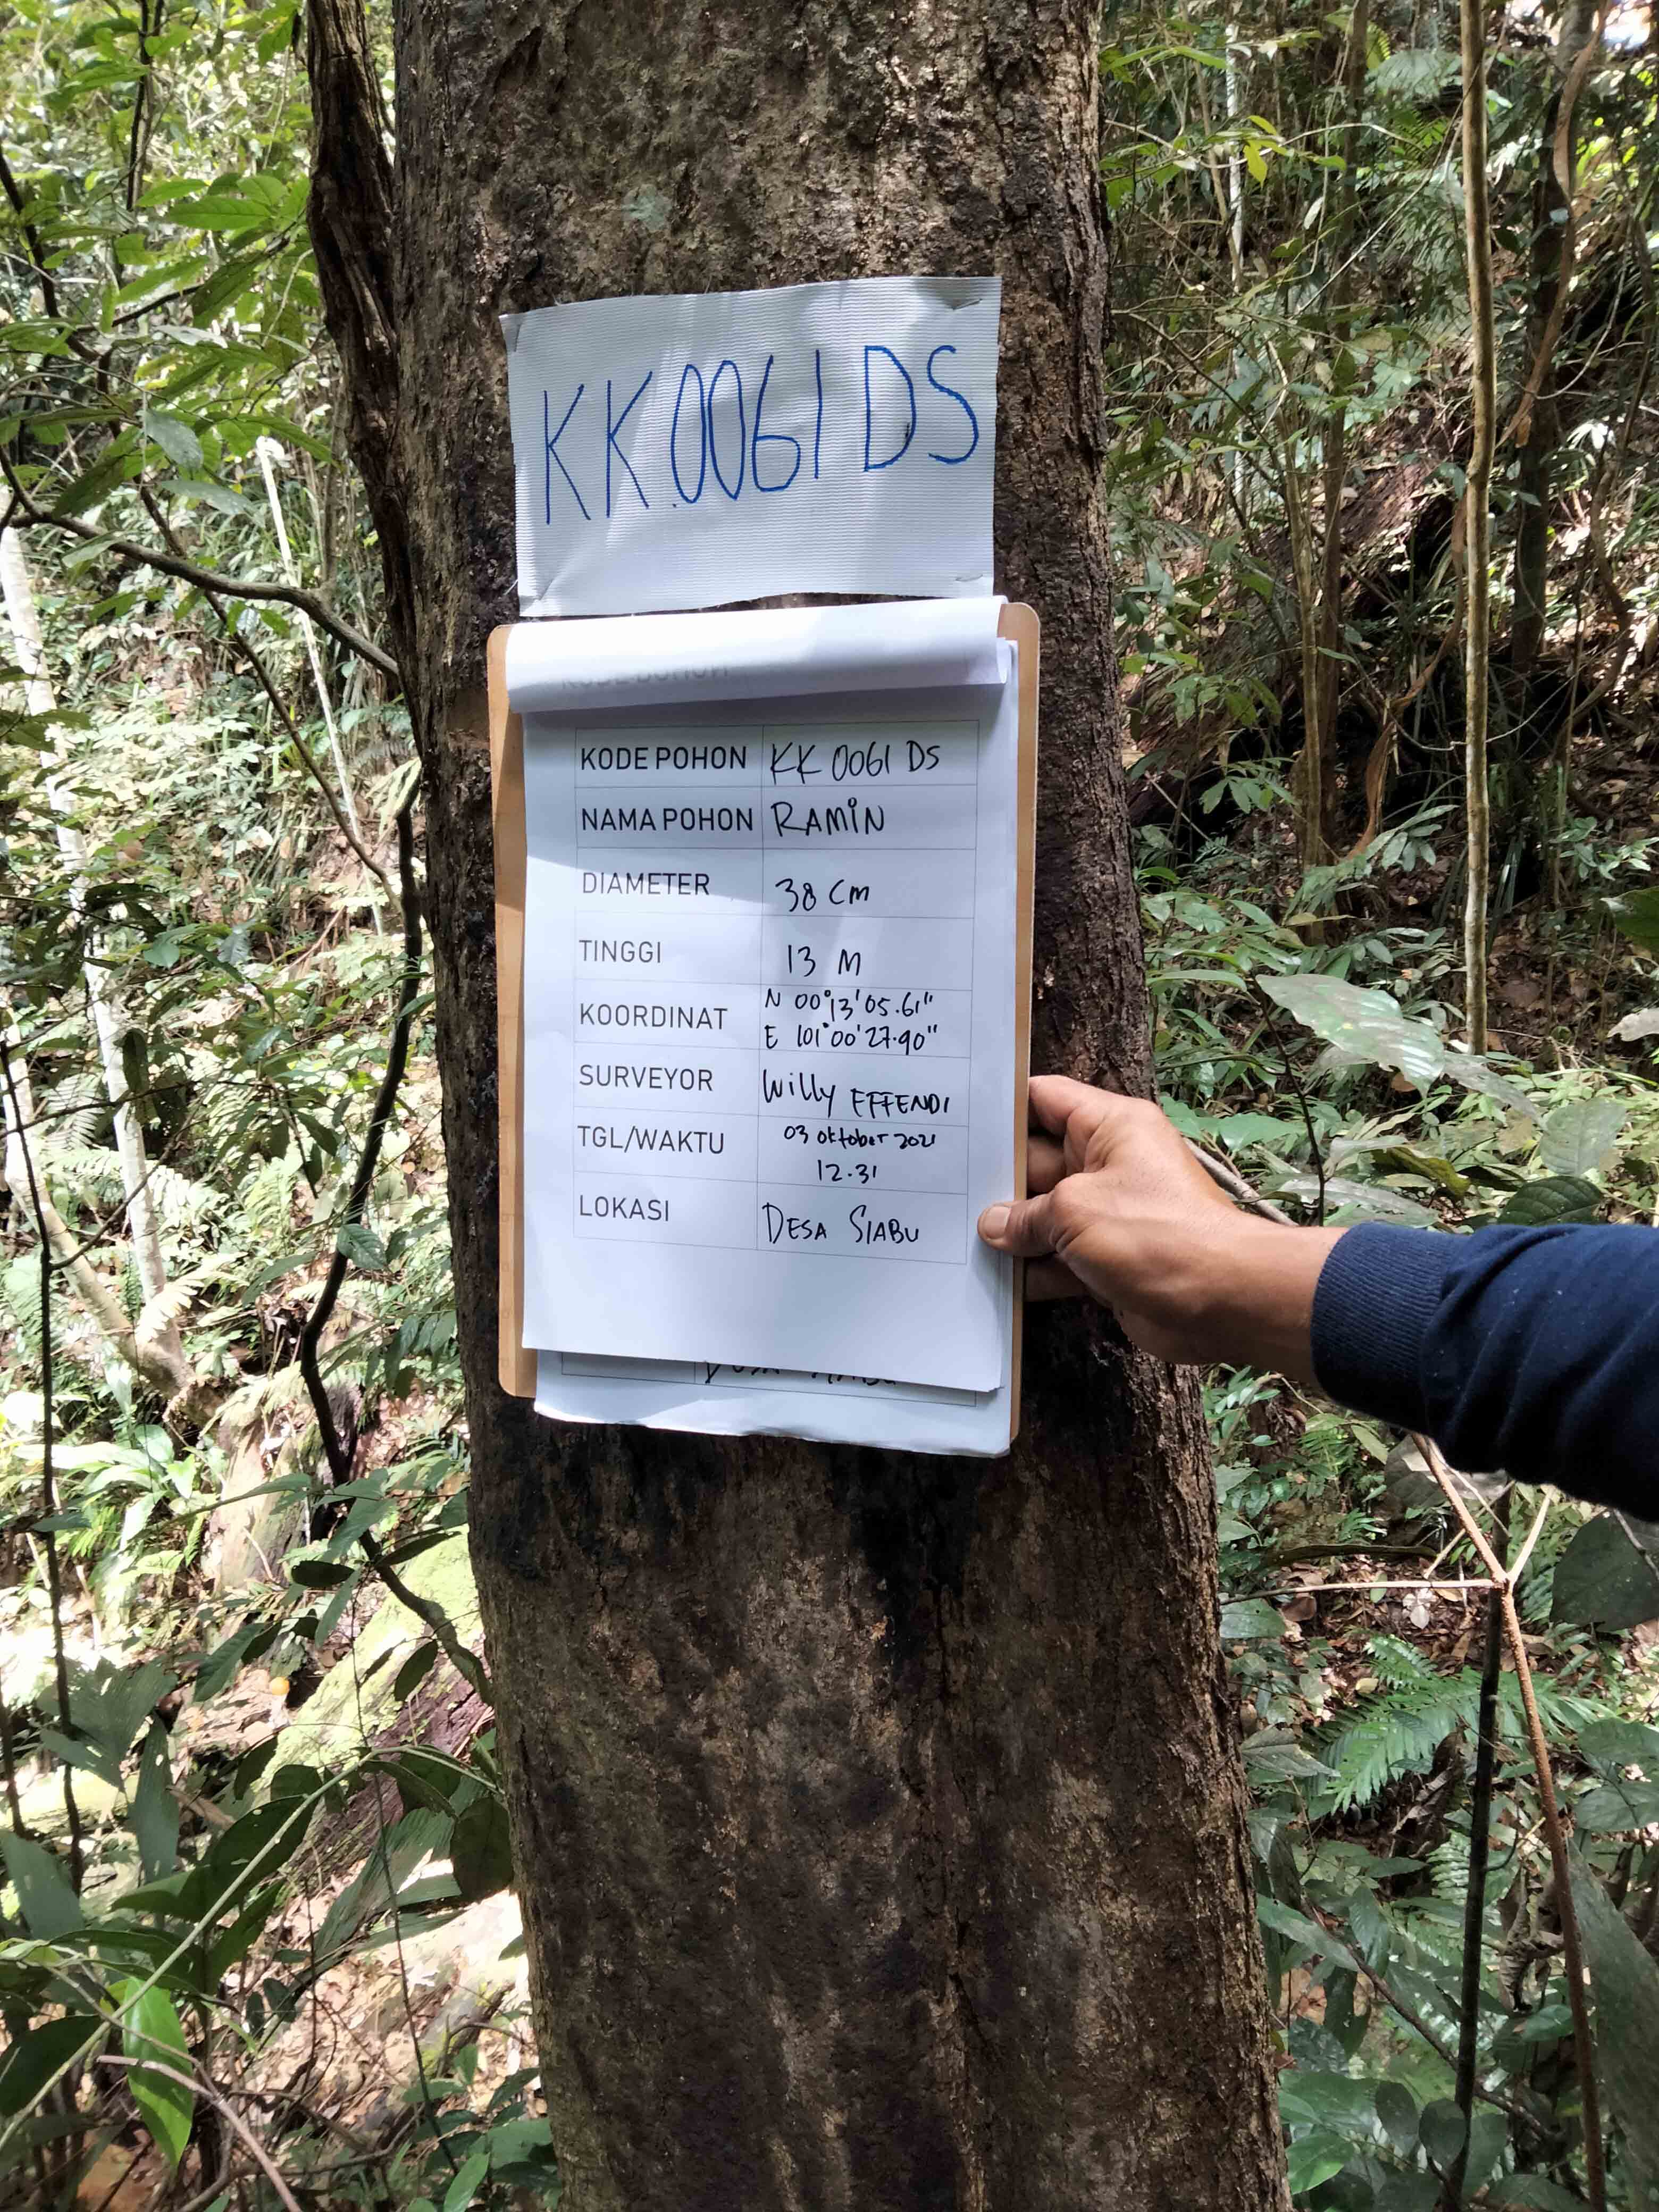 KK.0061 DS
KODE POHON KK 0061 DS
NAMA POHON RAMIN
DIAMETER 38 CM
TINGGI 13 M
KOORDINAT N 00°13'05.61"
E 101°00'27.90"
SURVEYOR Willy EFFENDI
TGL/WAKTU 03 oktober 2021
12.31
LOKASI DESA SIABU